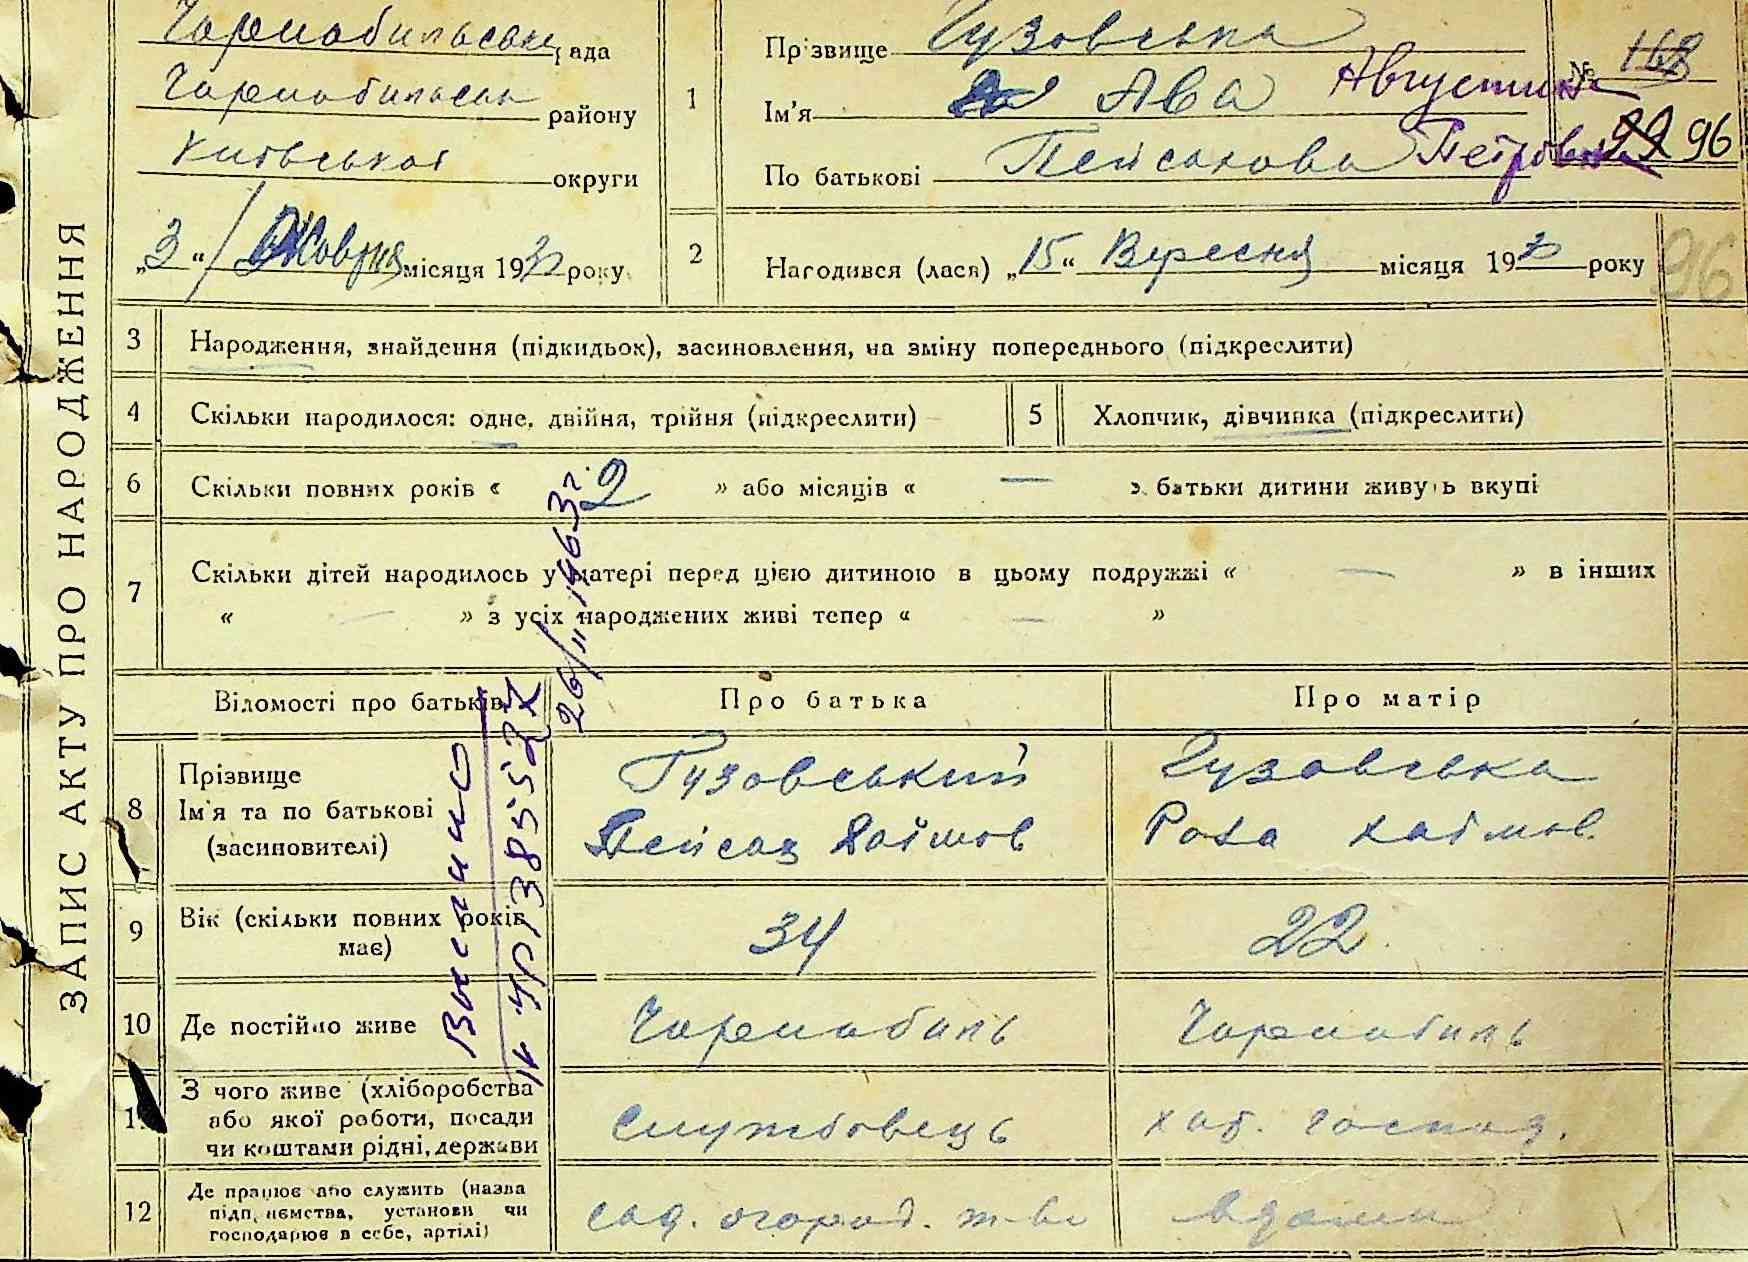 ЗАПИС АКТУ ПРО НАРОДЖЕННЯ
Чорнобильська рада
Чорнобильськ району
Київської округи
„3“ Жовтня місяця 1930 року
1
Прізвище Гузовська
Ім'я Ава Августина
По батькові Пейсахова Петровна
№ 168
99 96
2
Народився (лася) „15“ Вересня місяця 1930 року
96
3 Народження, знайдення (підкидьок), засиновлення, на зміну попереднього (підкреслити)
4 Скільки народилося: одне, двійня, трійня (підкреслити)
5 Хлопчик, дівчинка (підкреслити)
6 Скільки повних років « 2 » або місяців « — » батьки дитини живуть вкупі
7 Скільки дітей народилось у матері перед цією дитиною в цьому подружжі « — » в інших
« — » з усіх народжених живі тепер « — »
Відомості про батьків
Про батька
Про матір
8 Прізвище
Ім'я та по батькові
(засиновителі)
Гузовський
Пейсах Хаїмов
Гузовська
Роза Хаїмов.
9 Вік (скільки повних років
має)
34
22
10 Де постійно живе
Чорнобиль
Чорнобиль
11 З чого живе (хліборобства
або якої роботи, посади
чи коштами рідні, держави
Службовець
хат. господ.
12 Де працює або служить (назва
підприємства, установи чи
господарює в себе, артілі)
сад. огород. т-во
вдома
26/II 1963 г.